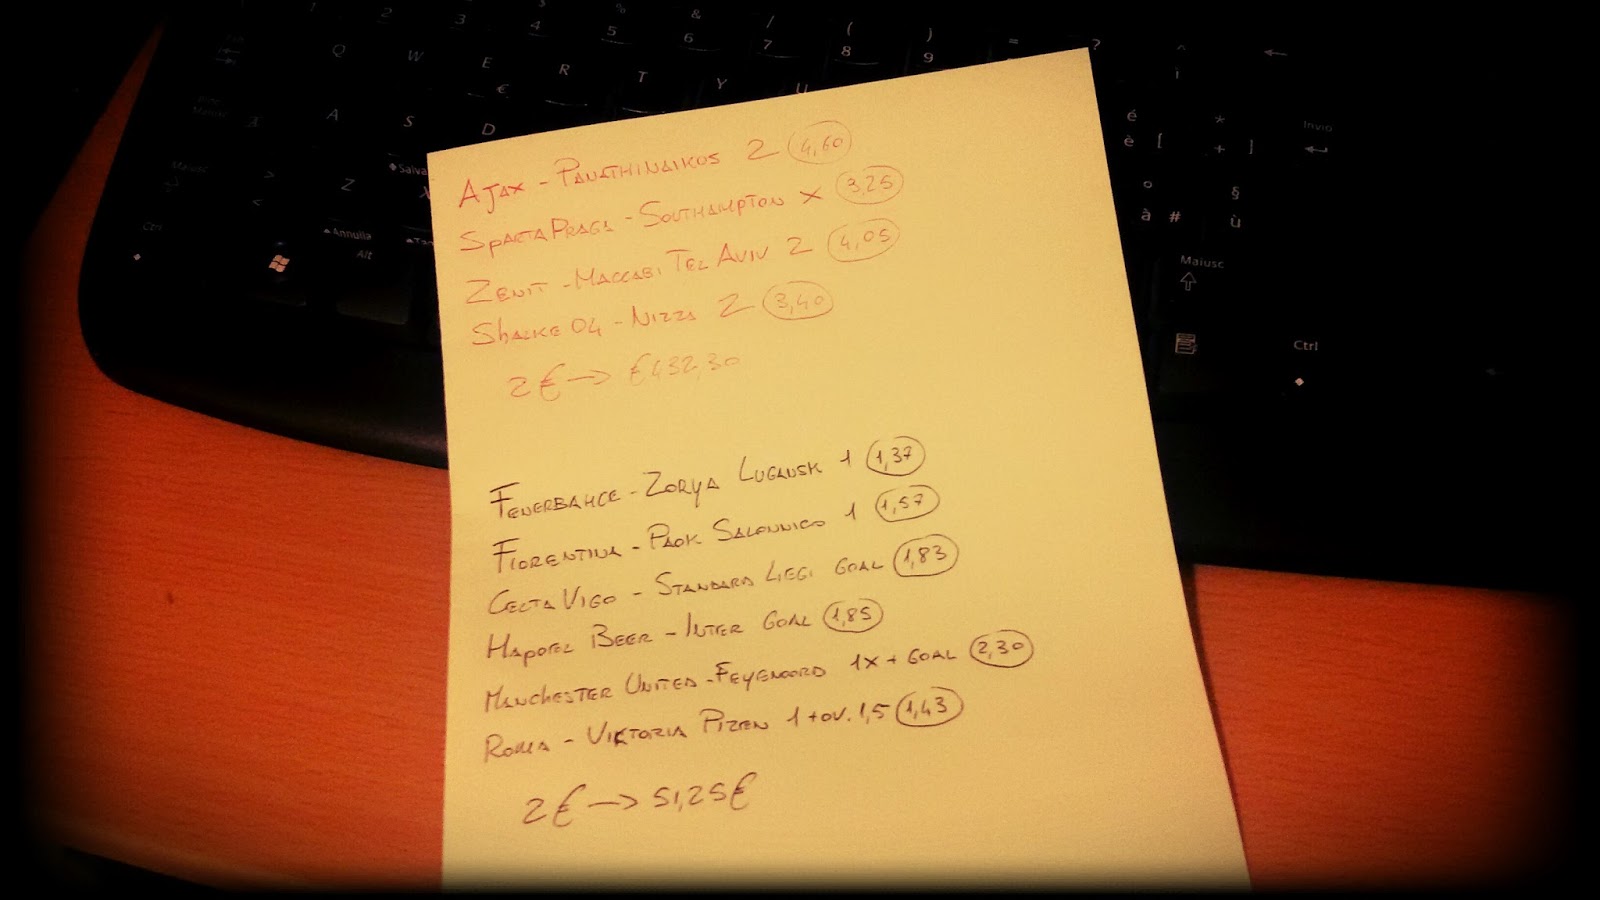 Ajax - Panathinaikos 2 4,60
Sparta Praga - Southampton X 3,25
Zenit - Maccabi Tel Aviv 2 4,05
Shalke 04 - Nizza 2 3,40
2€ → €432,30
Fenerbahce - Zorya Lugansk 1 1,37
Fiorentina - Paok Salonnico 1 1,57
Celta Vigo - Standard Liegi GOAL 1,83
Hapoel Beer - Inter GOAL 1,85
Manchester United - Feyenoord 1X + GOAL 2,30
Roma - Viktoria Plzen 1 + ov. 1,5 1,43
2€ → 51,25€
1 2 3 4 5 6 7 8 9
% & / ( ) = ?
Q W E R T Y U
€
A S D
Z X
Salva
Annulla
Ctrl
Alt
é è [ * + ]
Invio
à # § ù
Maiusc
Ctrl